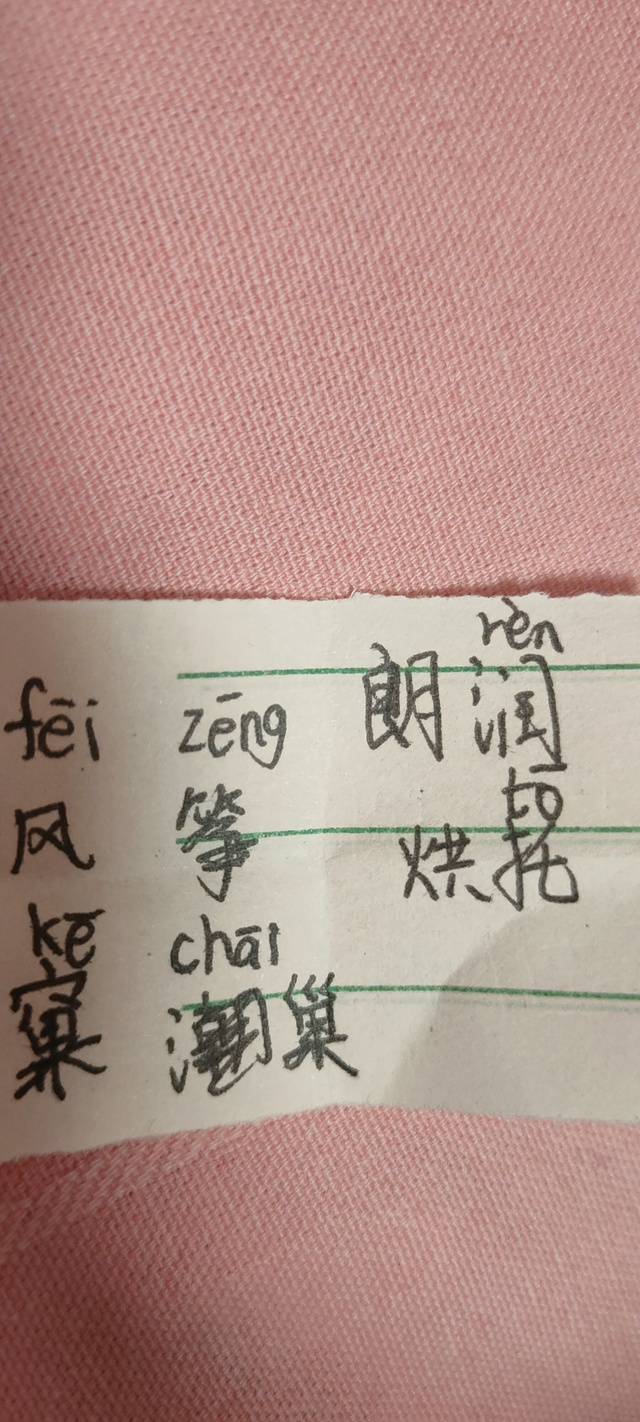 rèn
朗润
fēi zēng
风筝
tō
烘托
kē chāi
窠 巢